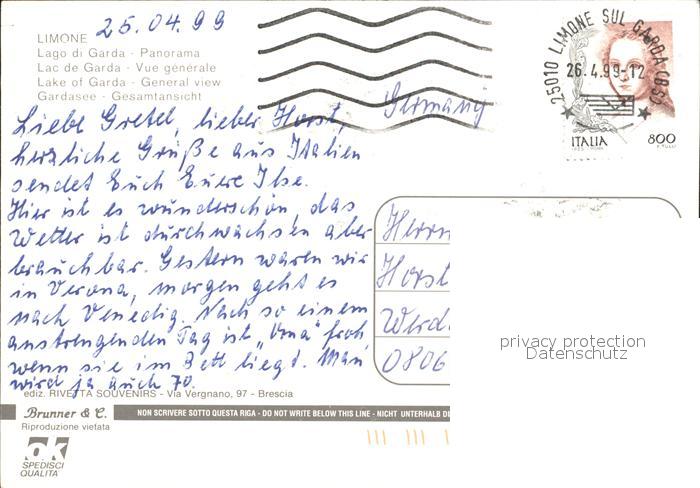 25.04.99
LIMONE
Lago di Garda - Panorama
Lac de Garda - Vue générale
Lake of Garda - General view
Gardasee - Gesamtansicht
25010 LIMONE SUL GARDA (BS)
26.4.99-12
ITALIA
800
Germany
Liebe Gretel, lieber Horst,
herzliche Grüße aus Italien
sendet Euch Euere Ilse.
Hier ist es wunderschön, das
Wetter ist durchwachsen aber
brauchbar. Gestern waren wir
in Verona, morgen geht es
nach Venedig. Nach so einem
anstrengenden Tag ist "Oma" froh,
wenn sie im Bett liegt. Man
wird ja auch 70.
Herrn
Horst
Werd
0806
privacy protection
Datenschutz
ediz. RIVETTA SOUVENIRS - Via Vergnano, 97 - Brescia
Brunner & C.
NON SCRIVERE SOTTO QUESTA RIGA - DO NOT WRITE BELOW THIS LINE - NICHT UNTERHALB DI
Riproduzione vietata
ok
SPEDISCI
QUALITÀ